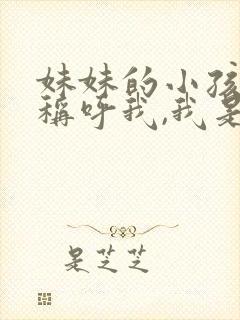 妹妹的小孩
稱呼我,我是
是芝芝